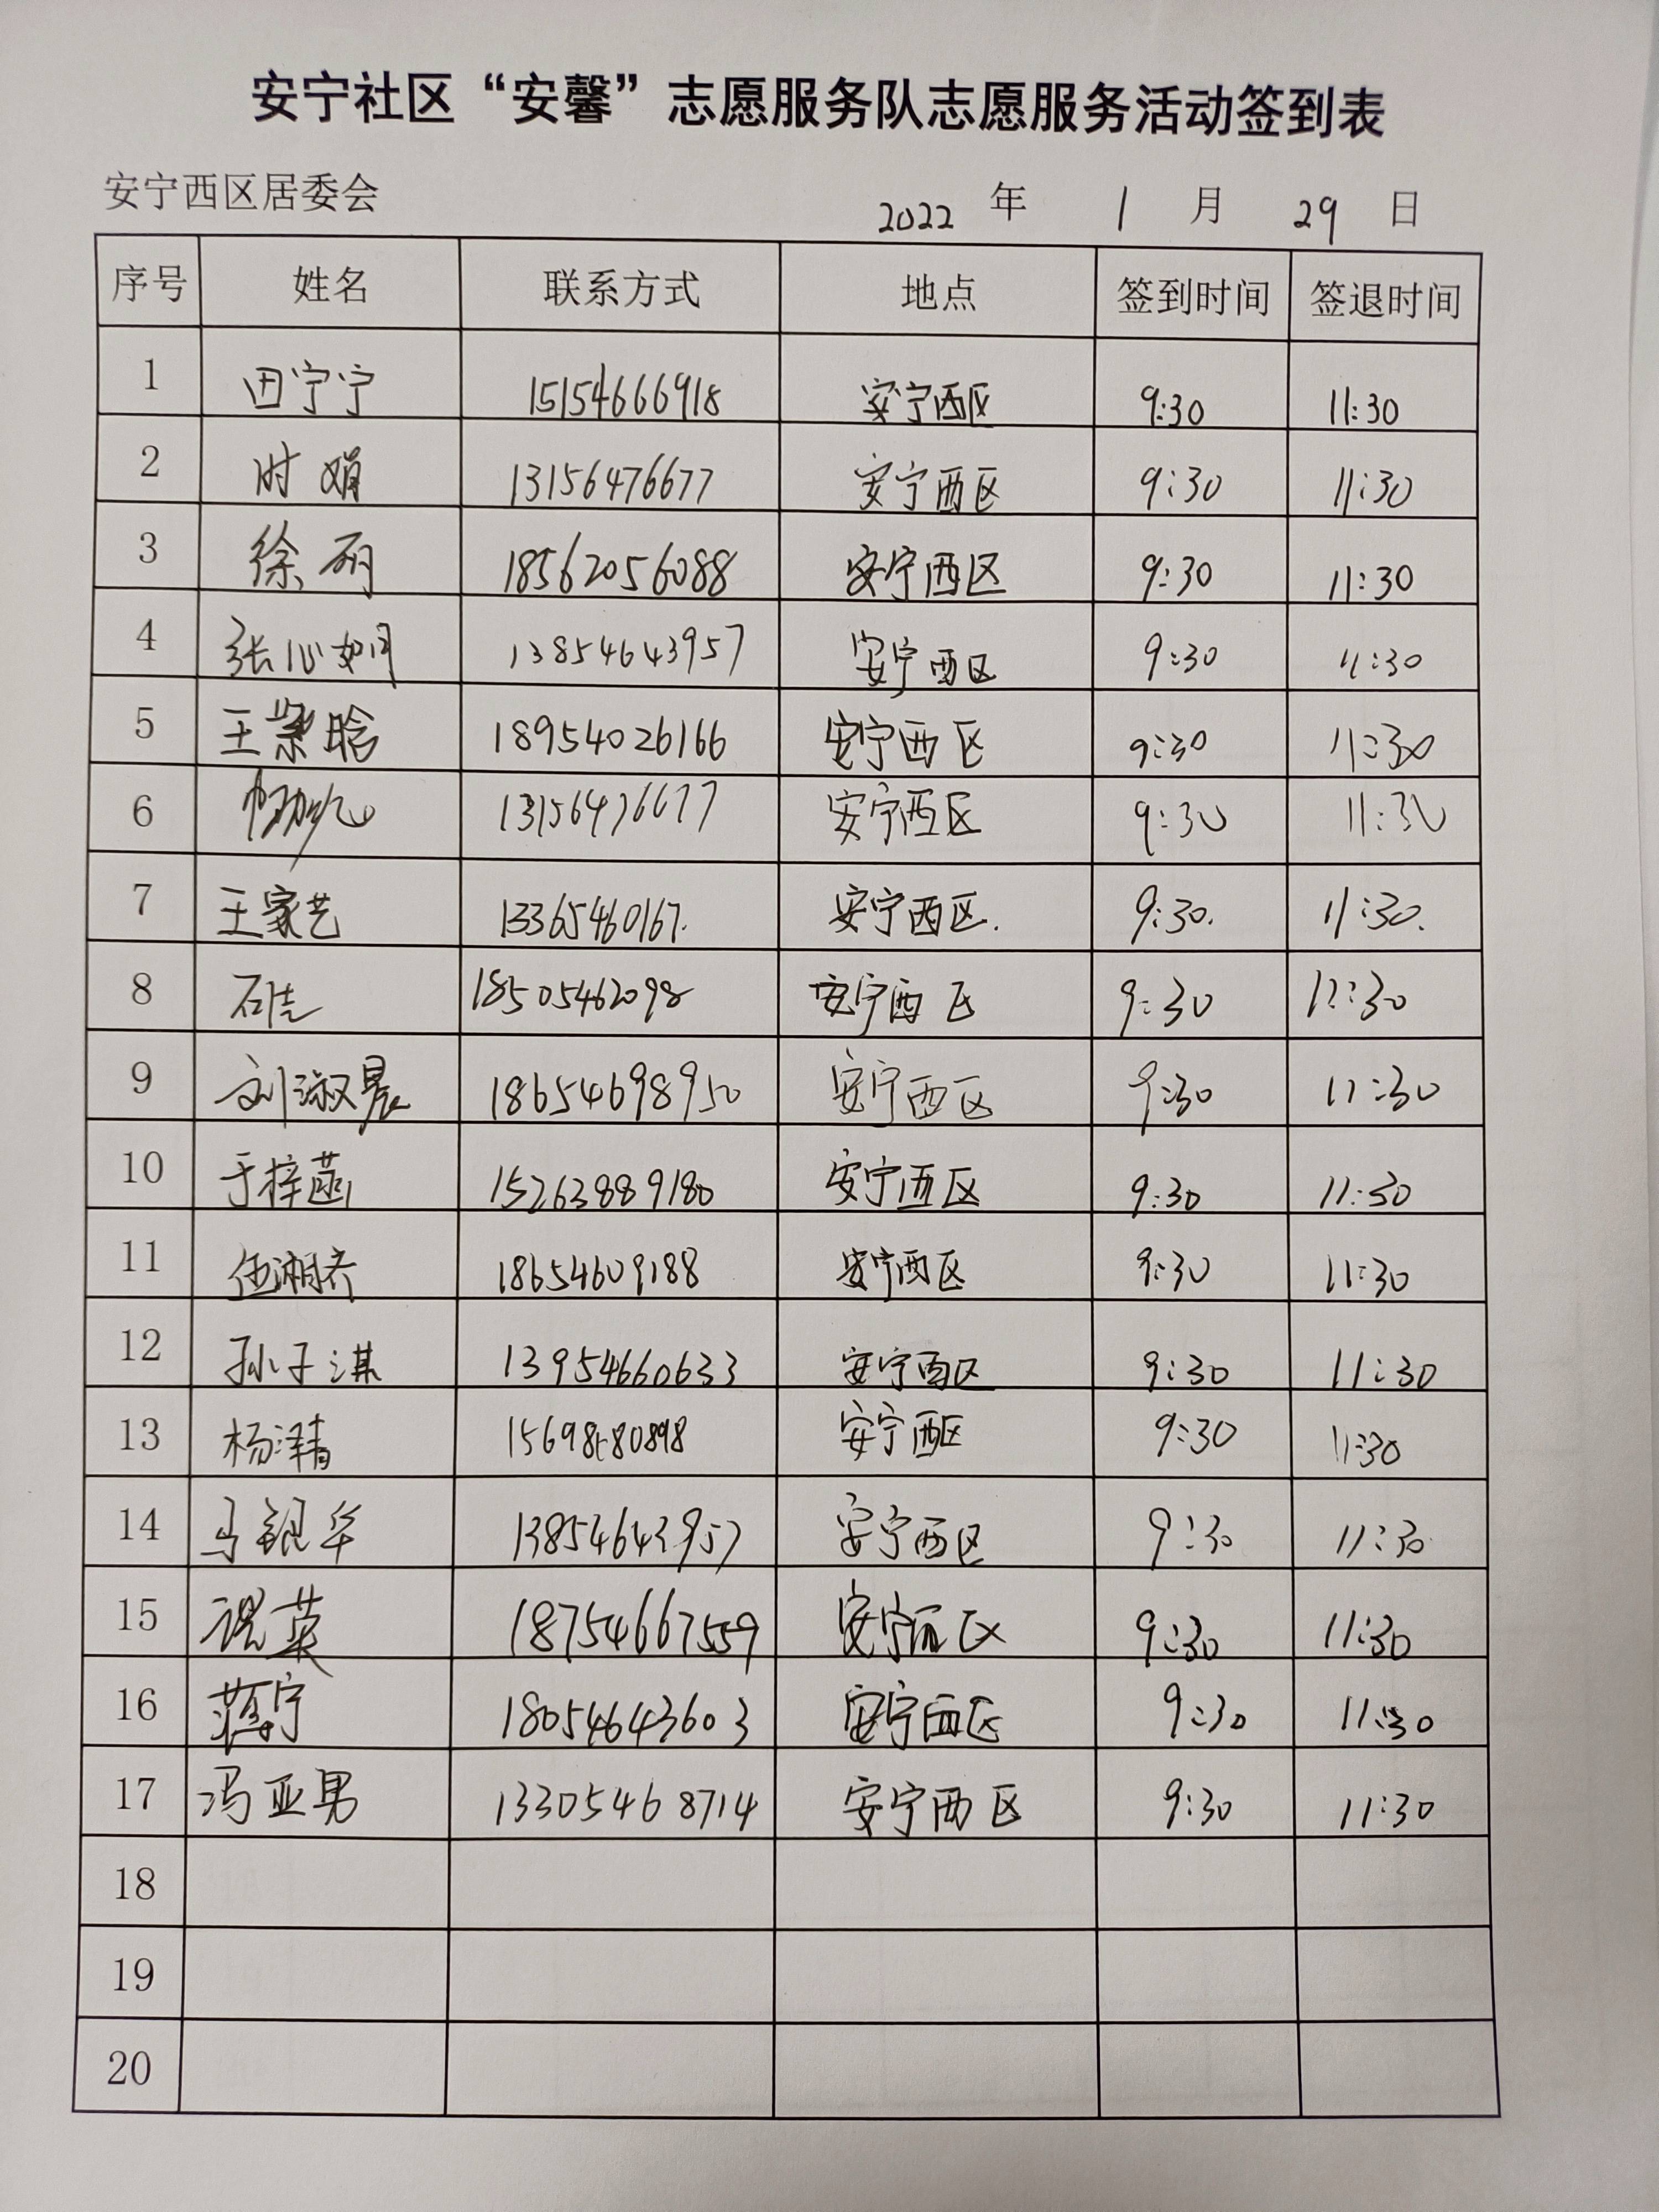 安宁社区“安馨”志愿服务队志愿服务活动签到表
安宁西区居委会 2022 年 1 月 29 日
序号 姓名 联系方式 地点 签到时间 签退时间
1 田宁宁 15154666918 安宁西区 9:30 11:30
2 时娟 13156476677 安宁西区 9:30 11:30
3 徐丽 18562056088 安宁西区 9:30 11:30
4 张心如 13854643957 安宁西区 9:30 11:30
5 王紫晗 18954026166 安宁西区 9:30 11:30
6 13156476677 安宁西区 9:30 11:30
7 王家艺 13365460167. 安宁西区. 9:30. 11:30.
8 石佳 18505462098 安宁西区 9:30 12:30
9 刘淑晨 18654698950 安宁西区 9:30 11:30
10 于梓菡 15263889180 安宁西区 9:30 11:30
11 伍湘齐 18654609188 安宁西区 9:30 11:30
12 孙子淇 13954660633 安宁西区 9:30 11:30
13 杨泽清 15698680898 安宁西区 9:30 11:30
14 马银华 13854643957 安宁西区 9:30 11:30
15 18754667559 安宁西区 9:30 11:30
16 蒋宁 18054643603 安宁西区 9:30 11:30
17 冯亚男 13305468714 安宁西区 9:30 11:30
18
19
20